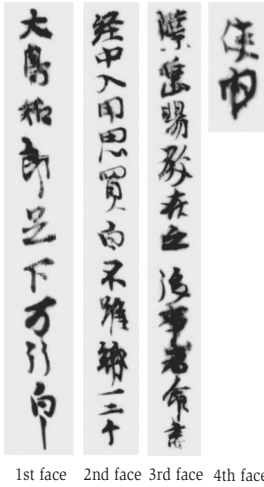 大烏知郎足下万拜白
経中入用思買白不雖紙一二个
牒垂賜教在之 後事者命盡
使内
1st face 2nd face 3rd face 4th face